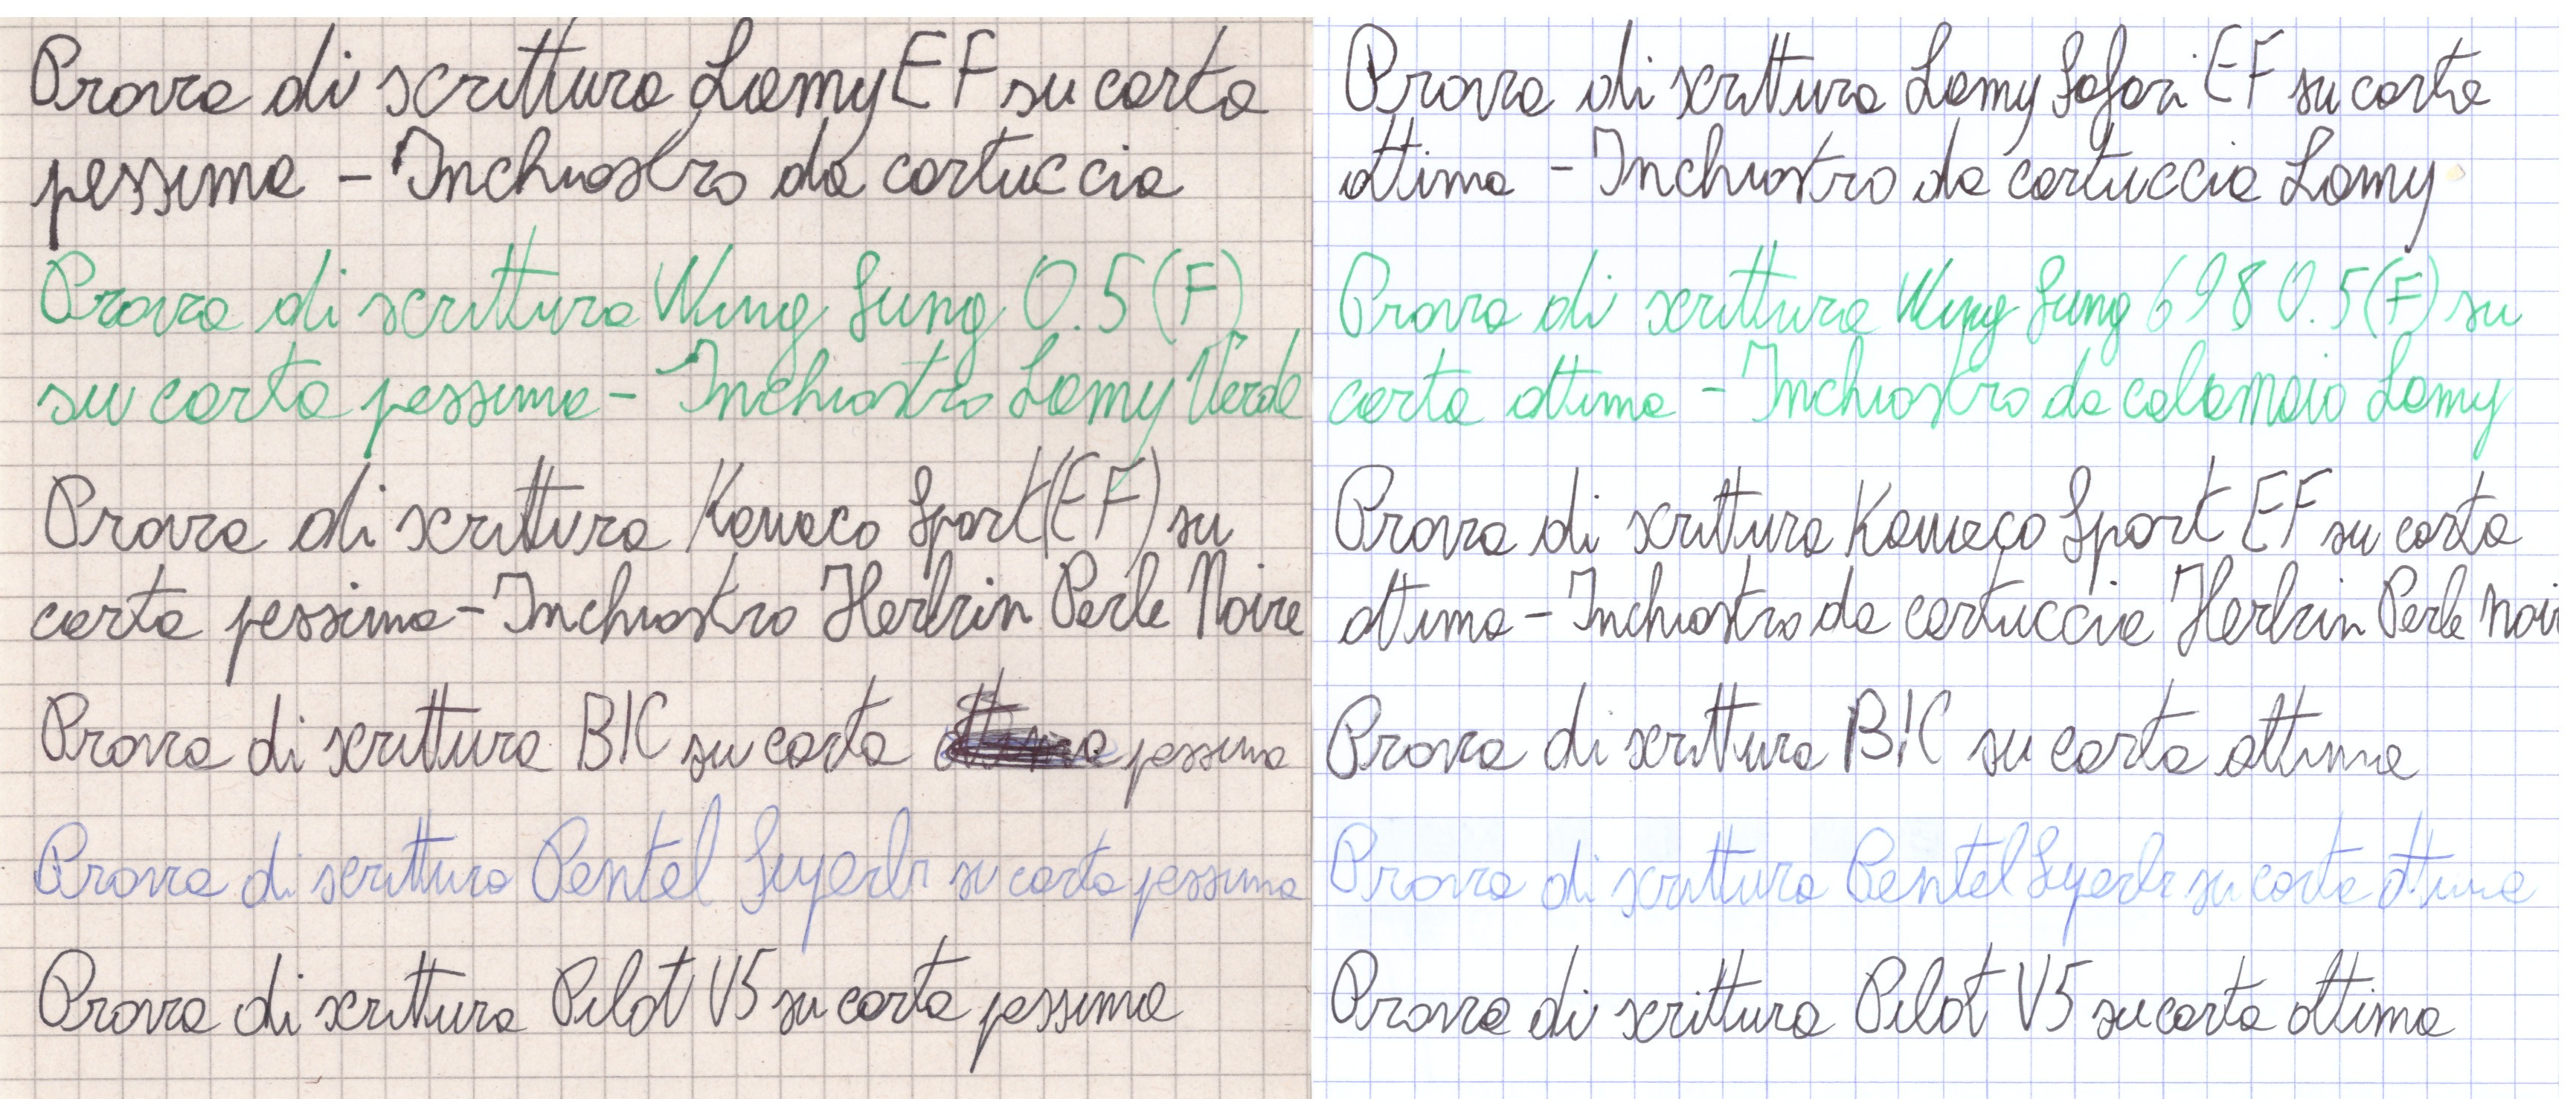 Prova di scrittura Lamy EF su carta
pessima - Inchiostro da cartuccia
Prova di scrittura Wing Sung 0.5 (F)
su carta pessima - Inchiostro Lamy Verde
Prova di scrittura Kaweco Sport (EF) su
carta pessima - Inchiostro Herbin Perle Noire
Prova di scrittura BIC su carta pessima
Prova di scrittura Pentel Superb su carta pessima
Prova di scrittura Pilot V5 su carta pessima
Prova di scrittura Lamy Safari EF su carta
ottima - Inchiostro da cartuccia Lamy
Prova di scrittura Wing Sung 698 0.5 (F) su
carta ottima - Inchiostro da calamaio Lamy
Prova di scrittura Kaweco Sport EF su carta
ottima - Inchiostro da cartuccia Herbin Perle Noi
Prova di scrittura BIC su carta ottima
Prova di scrittura Pentel Superb su carta ottima
Prova di scrittura Pilot V5 su carta ottima